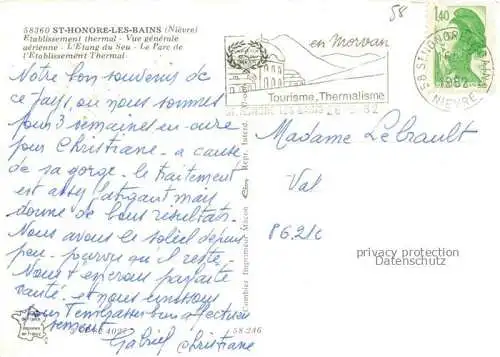 58360 ST-HONORE-LES-BAINS (Nièvre)
Etablissement thermal - Vue générale
aérienne - L'Etang du Seu - Le Parc de
l'Etablissement Thermal
58
1,40
en Morvan
Tourisme, Thermalisme
58 ST HONORE LES BAINS
1982
NIEVRE
Notre bon souvenir de
ce pays, ou nous sommes
pour 3 semaines en cure
pour Christiane - a cause
de sa gorge - le traitement
est assez fatigant mais
donne de bons résultats.
Nous avons le soleil depuis
peu - pourvu qu'il reste.
Nous t en
santé - et nous
t'embrasser bien affectueu
sement
Gabriel Christiane
Madame Lebrault
Val
86.210
privacy protection
Datenschutz
Combier Imprimeur Mâcon
Repr. Interd.
58-246